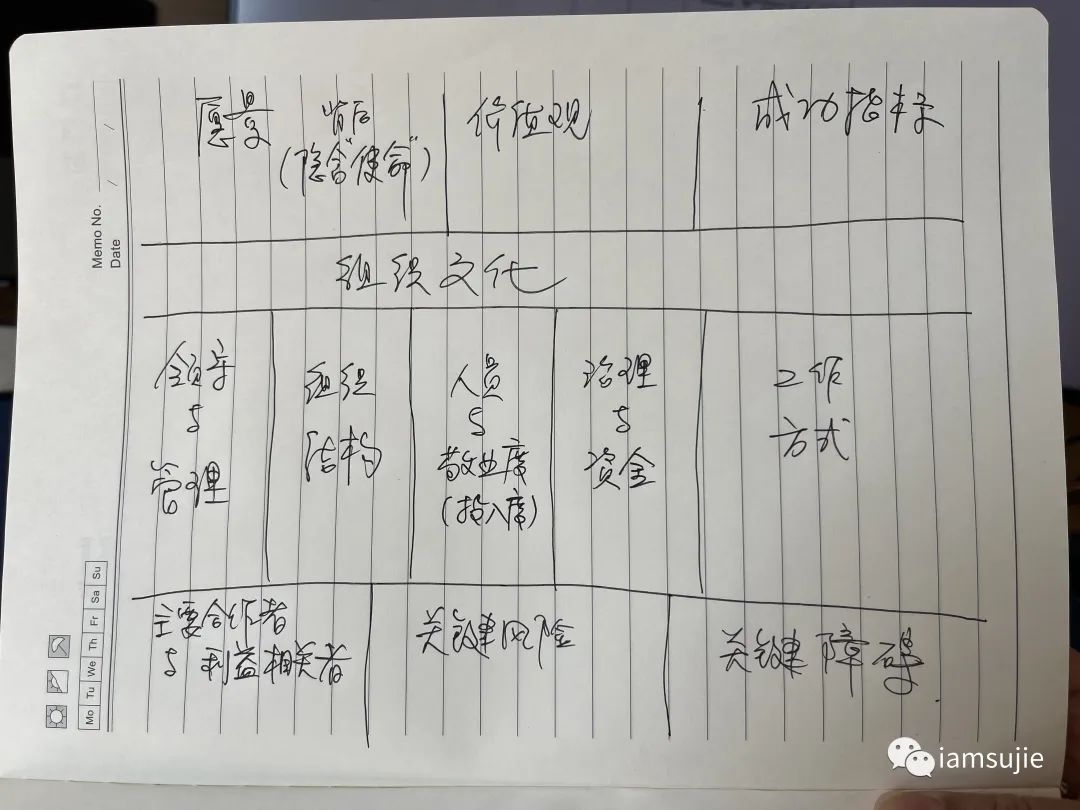 Memo No.
Date / /
Mo Tu We Th Fr Sa Su
愿景
背后
(隐含"使命")
价值观
成功指标
组织文化
领导
与
管理
组织
结构
人员
与
敬业度
(投入度)
治理
与
资金
工作
方式
主要合作者
与利益相关者
关键风险
关键障碍
iamsujie